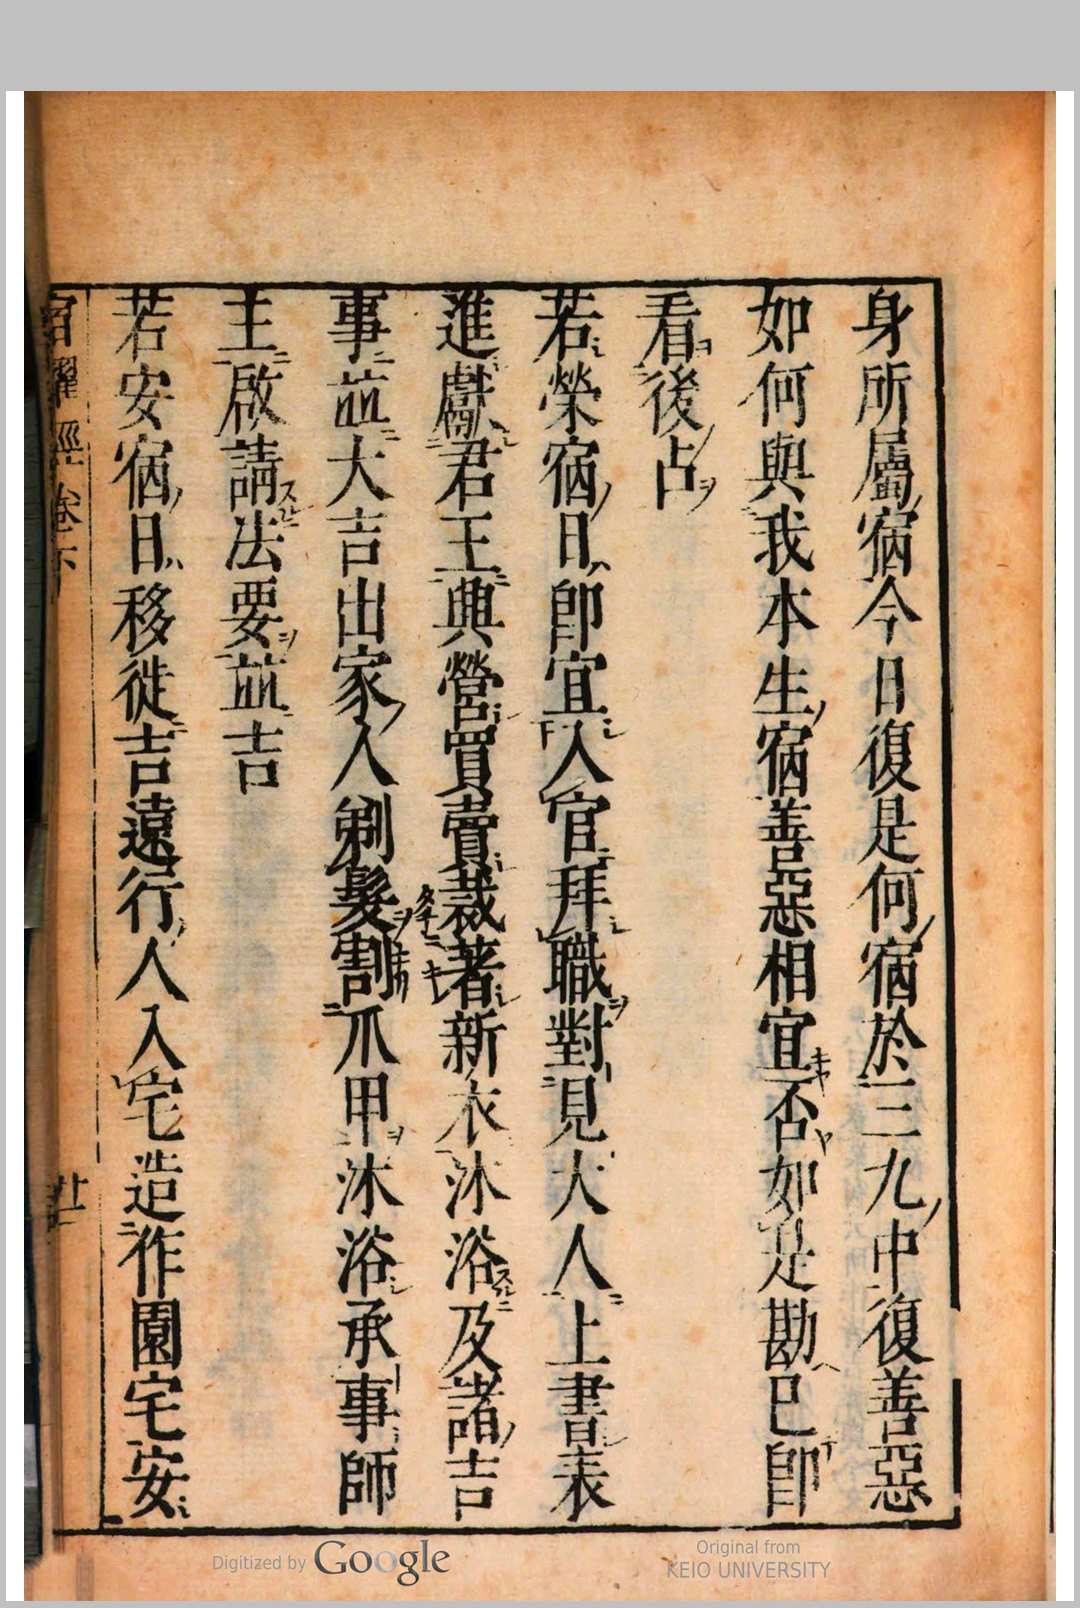 身所屬宿今日復是何宿於三九中復善惡
如何與我本生宿善惡相宜否如是勘已卽
看後占
若榮宿日卽宜入官拜職對見大人上書表
進獻君王興營買賣裁著新衣沐浴及諸吉
事並大吉出家人剃髮割爪甲沐浴承事師
主啟請法要並吉
若安宿日移徙吉遠行人入宅造作園宅安
宿曜經卷下
廿二
Digitized by Google
Original from
KEIO UNIVERSITY